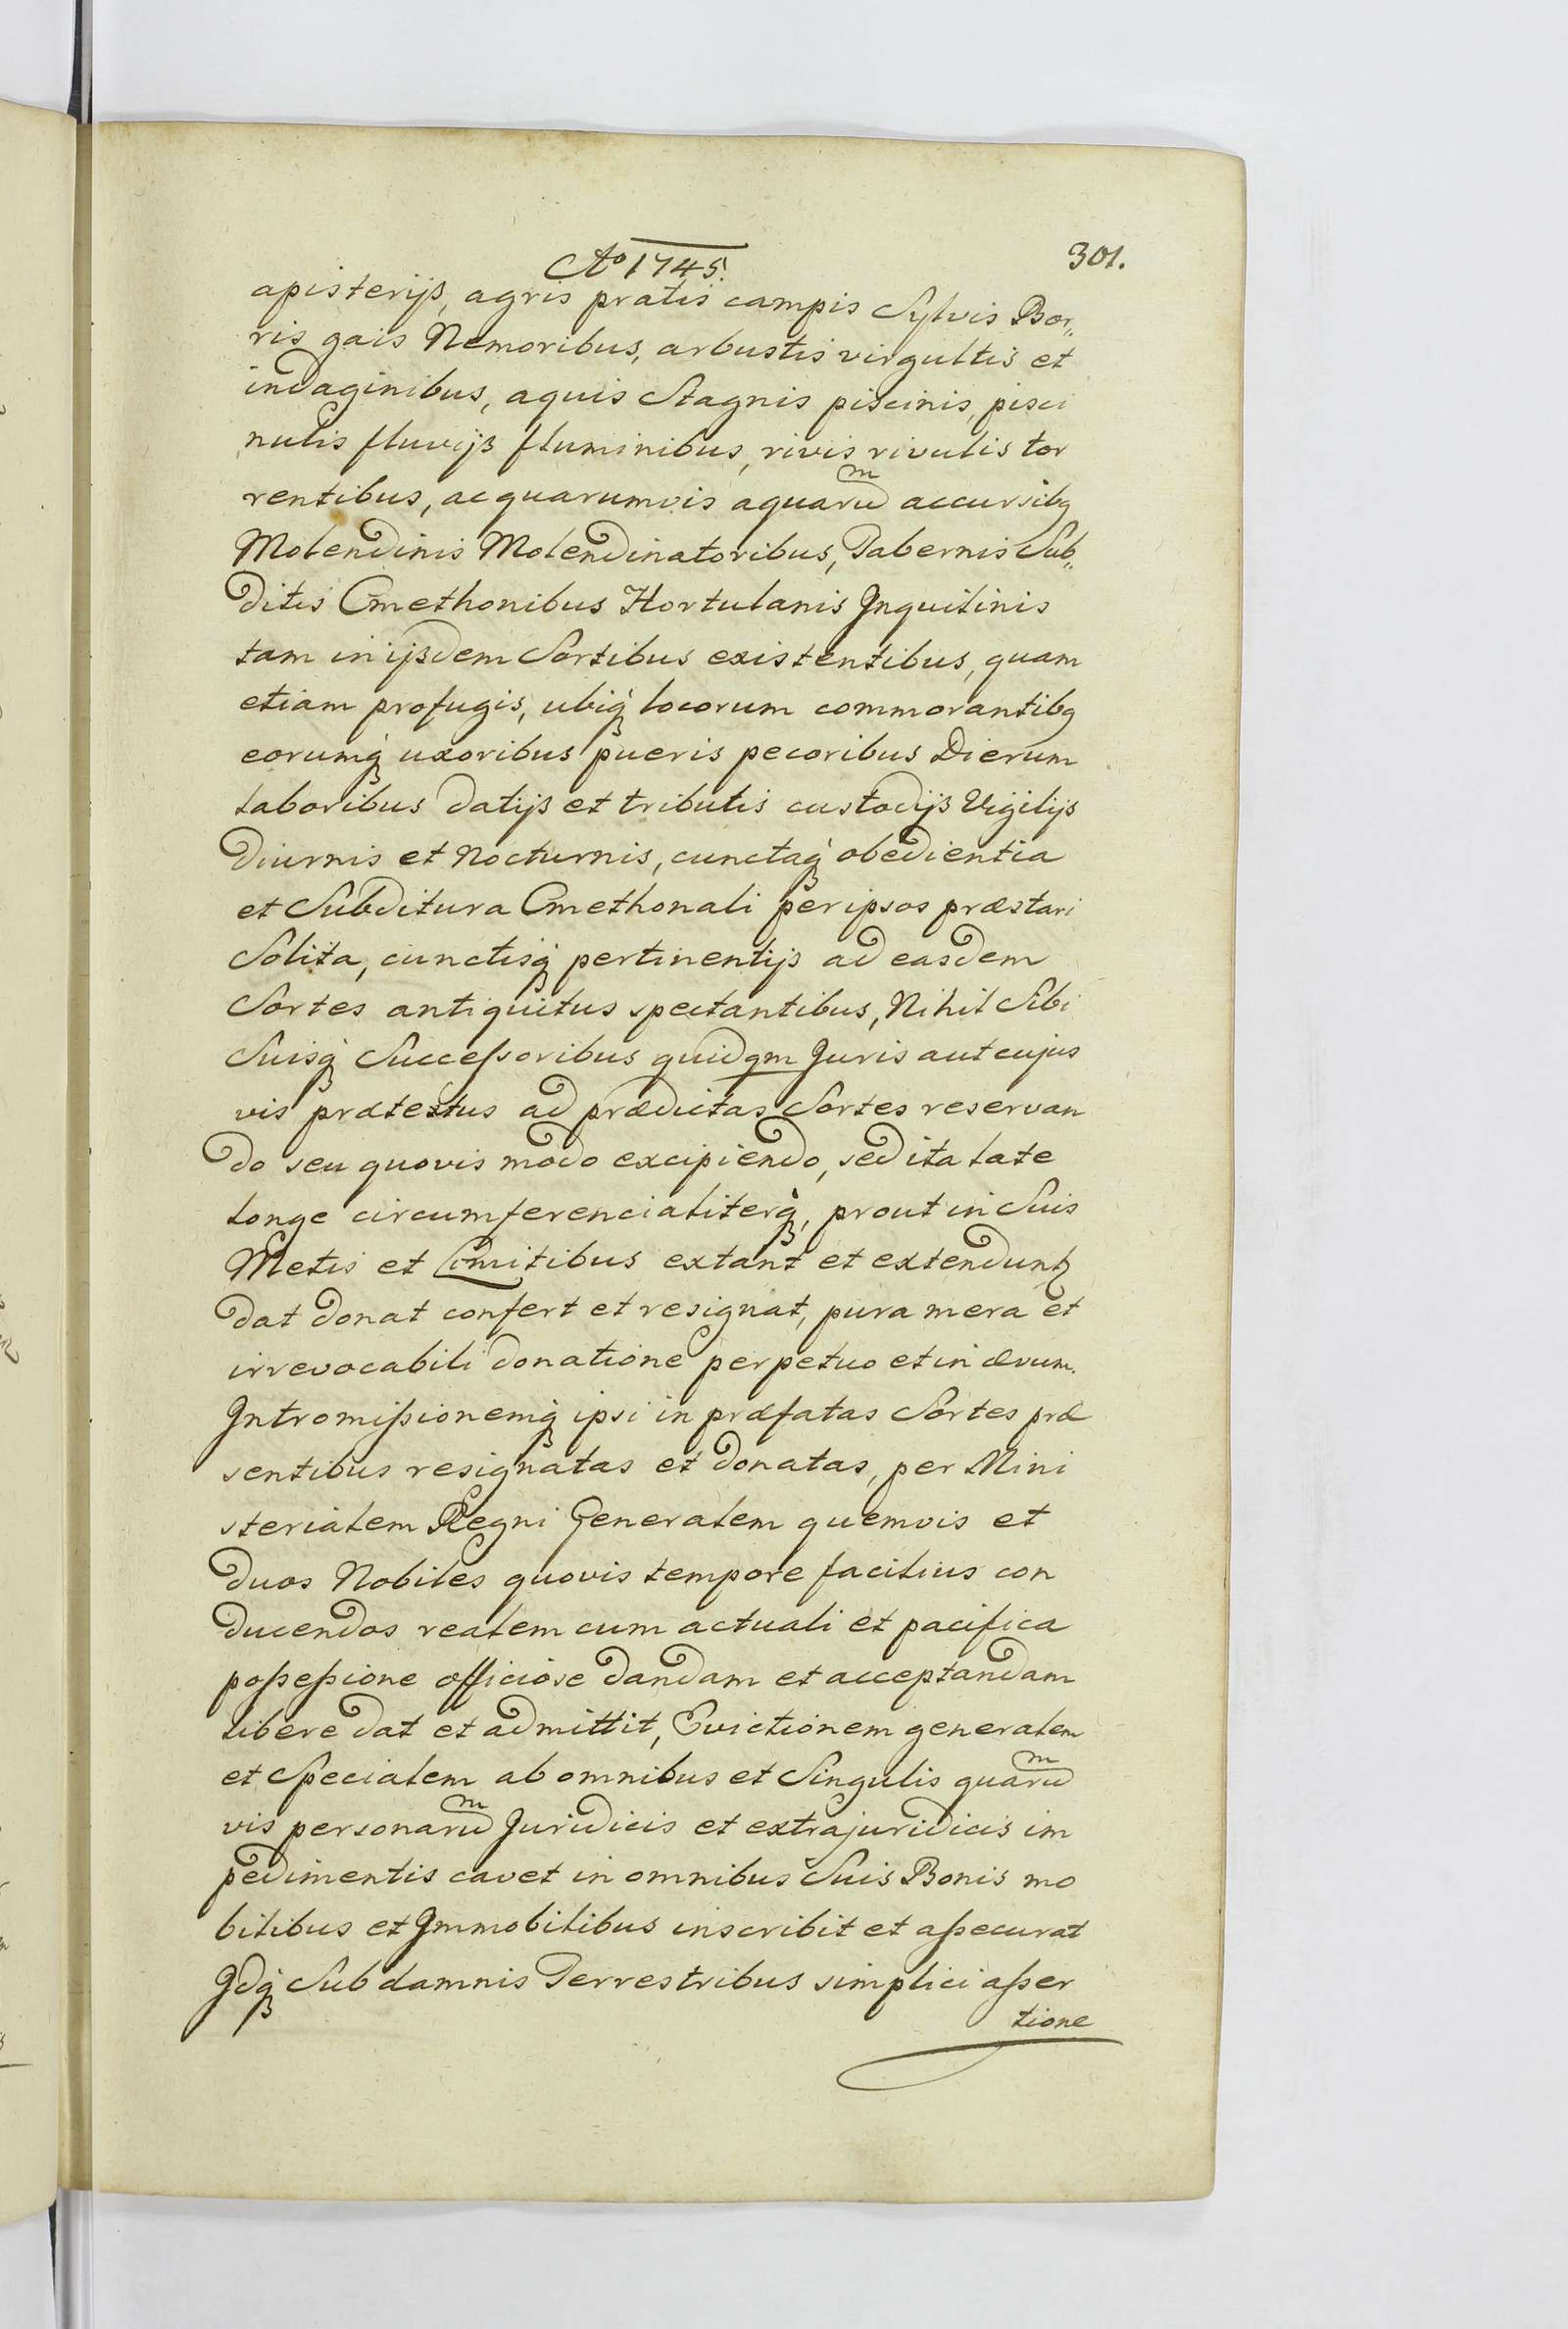 Aº 1745.
301.
apisterijs, agris pratis campis Sylvis Bor„
ris gais Nemoribus, arbustis virgultis et
indaginibus, aquis Stagnis piscinis, pisci
nulis fluvijs fluminibus, rivis rivulis tor
rentibus, ac quarumvis aquarum accursibq
Molendinis Molendinatoribus, Tabernis Sub„
ditis Cmethonibus Hortulanis Inquilinis
tam in ijsdem Sortibus existentibus, quam
etiam profugis, ubiq locorum commorantibq
eorumq uxoribus pueris pecoribus Dierum
laboribus datijs et tributis custodijs Vigilijs
diurnis et Nocturnis, cunctaq obedientia
et Subditura Cmethonali per ipsos præstari
Solita, cunctisq pertinentijs ad easdem
Sortes antiquitus spectantibus, Nihil Sibi
Suisq Successoribus quidqm Juris aut cujus
vis prætextus ad prædictas Sortes reservan
do seu quovis modo excipiendo, sed ita late
longe circumferencialiterq, prout in Suis
Metis et Limitibus extant et extendunt
dat donat confert et resignat, pura mera et
irrevocabili donatione perpetuo et in ævum.
Intromissionemq ipsi in præfatas Sortes præ
sentibus resignatas et donatas, per Mini
sterialem Regni Generalem quemvis et
duos Nobiles quovis tempore facilius con
ducendos realem cum actuali et pacifica
possessione officiose dandam et acceptandam
libere dat et admittit, Evictionem generalem
et Specialem ab omnibus et Singulis quarum
vis personarum Juridicis et extrajuridicis im
pedimentis cavet in omnibus Suis Bonis mo
bilibus et Immobilibus inscribit et assecurat
Idq Sub damnis Terrestribus simplici asser
tione